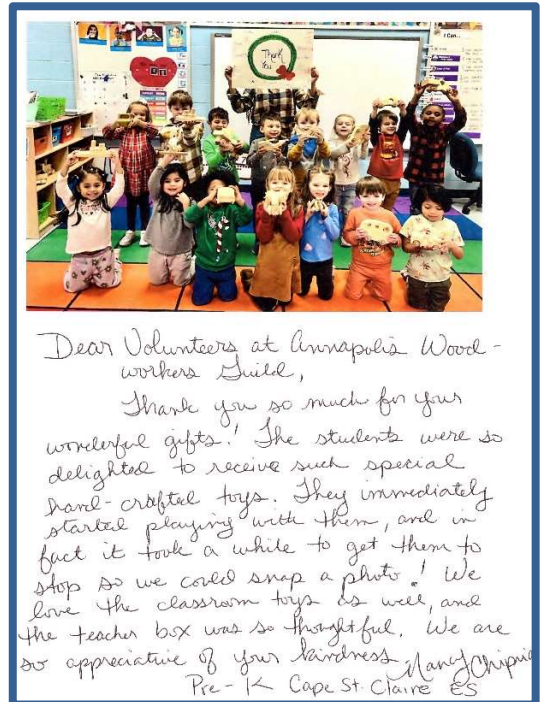 Thank
You
I Can...
Dear Volunteers at Annapolis Wood-
workers Guild,
Thank you so much for your
wonderful gifts! The students were so
delighted to receive such special
hand-crafted toys. They immediately
started playing with them, and in
fact it took a while to get them to
stop so we could snap a photo! We
love the classroom toys as well, and
the teacher box was so thoughtful. We are
so appreciative of your kindness.
Nancy
Pre-K Cape St. Claire ES